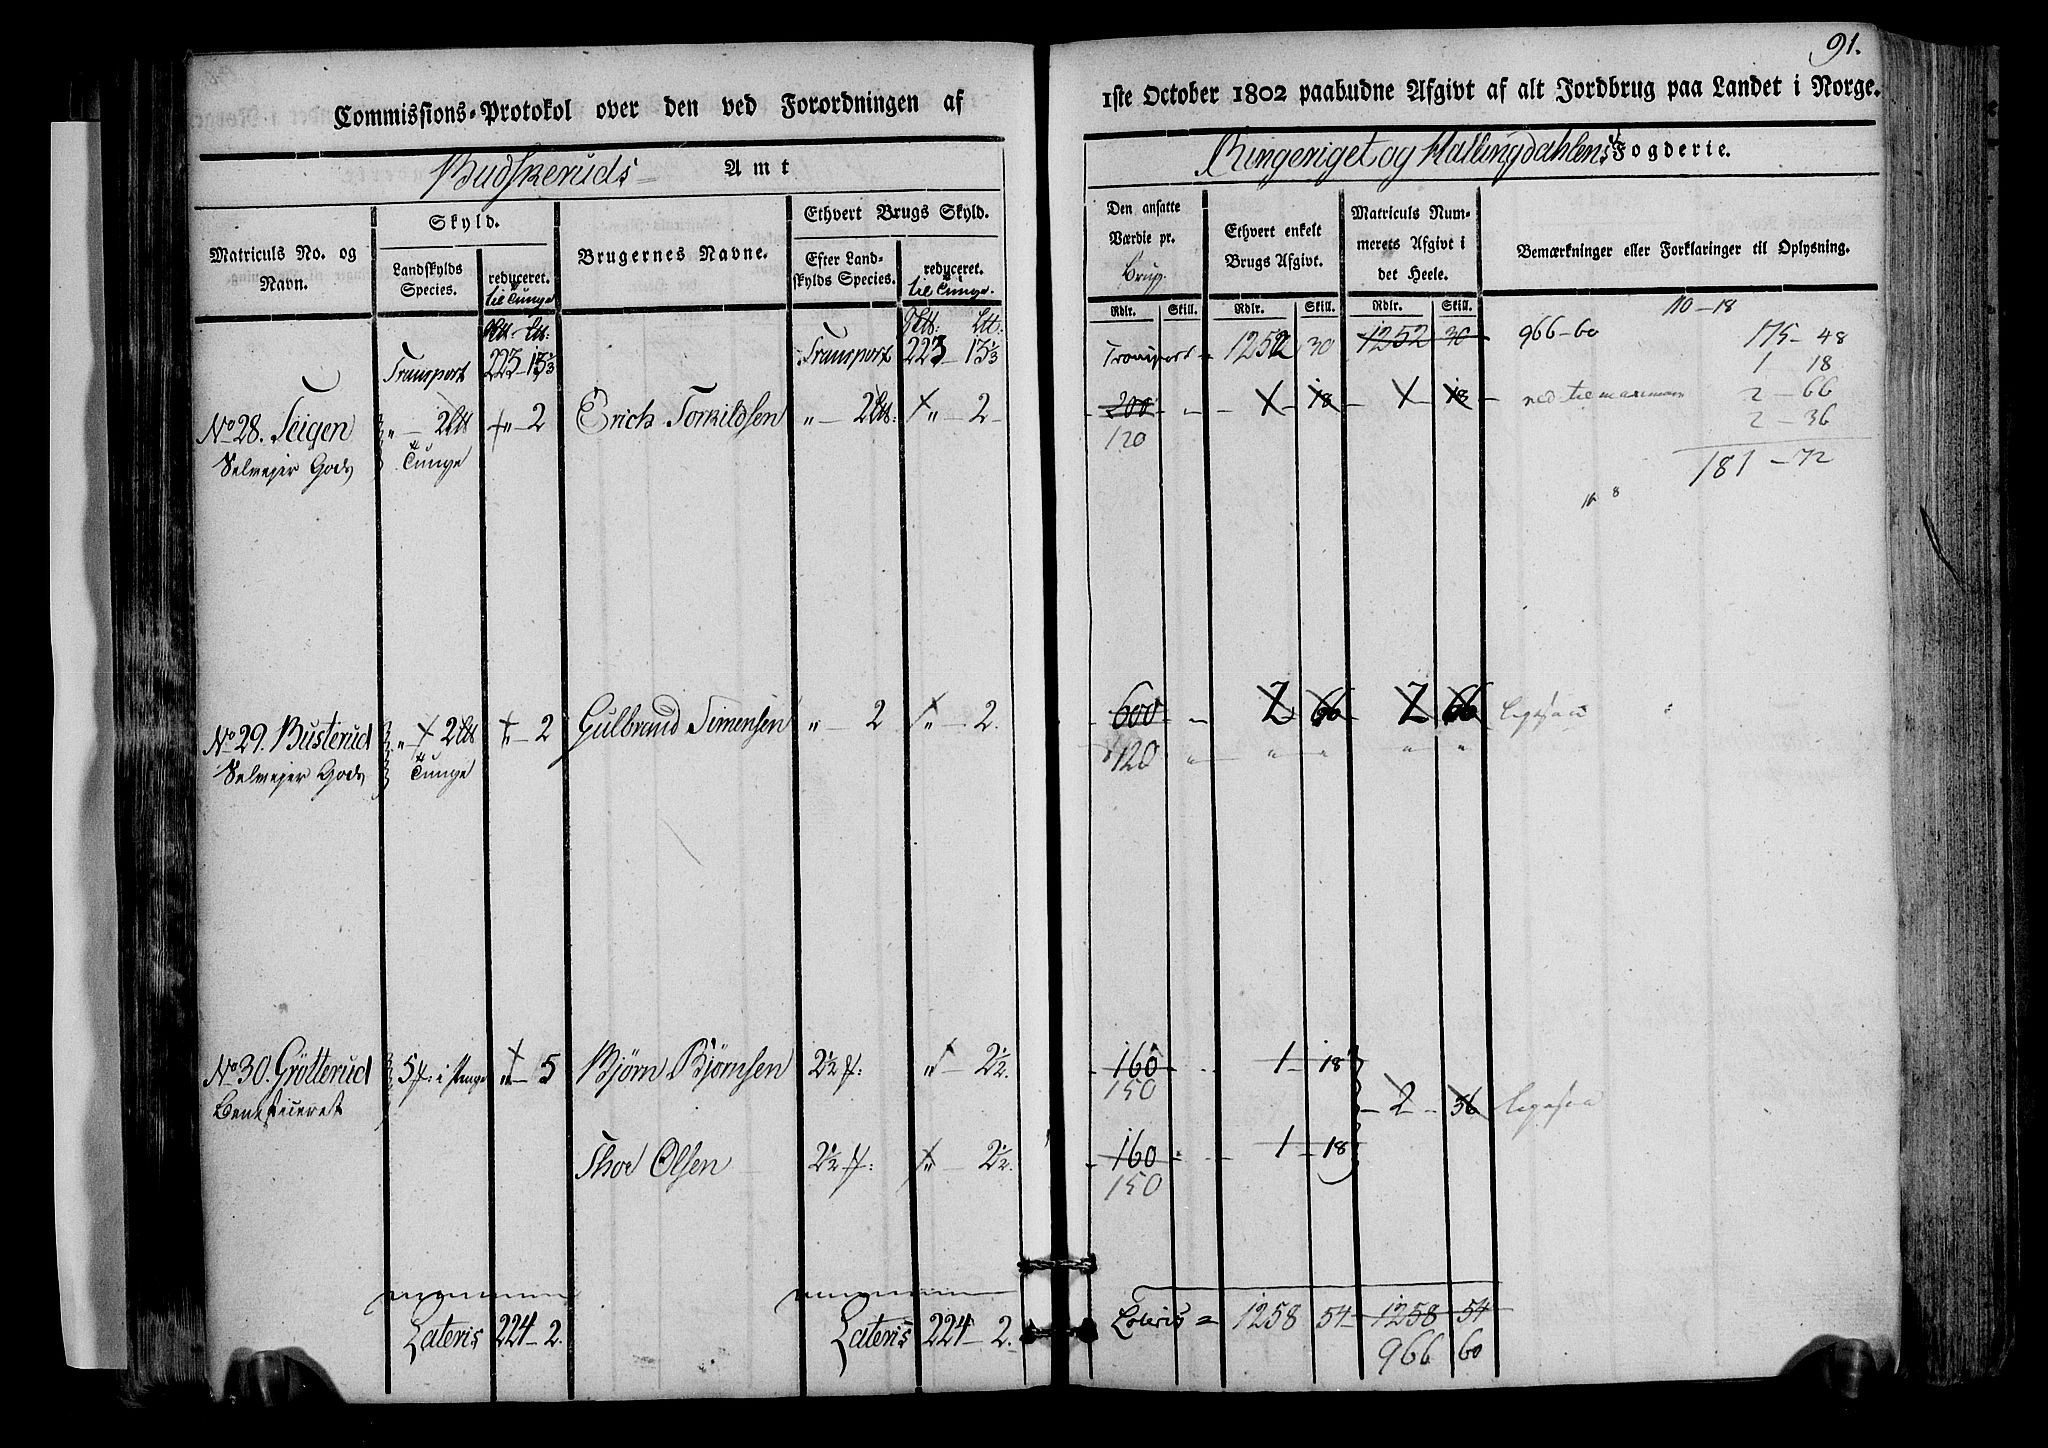 91.
Commissions-Protokol over den ved Forordningen af 1ste October 1802 paabudne Afgivt af alt Jordbrug paa Landet i Norge.
Budskeruds Amt
Ringeriget og Hallingdahlens Fogderie.
Matriculs No. og Navn.
Skyld.
Landskylds Species.
reduceret. til Tunge
Brugernes Navne.
Ethvert Brugs Skyld.
Efter Landskylds Species.
reduceret. til Tunge.
Den ansatte Værdie pr. Brug.
Ethvert enkelt Brugs Afgivt.
Matriculs Nummerets Afgivt i det Heele.
Bemærkninger eller Forklaringer til Oplysning.
Rdlr. Skill. Rdlr. Skill. Rdlr. Skill.
110-18
Transport 223-13⅓ Transport 223-13⅓ Transport 1252 30 1252 30 966-60 175-48
1 18
No 28. Teigen „ 2 2 Erich Torkildsen „ 2 „ 2 200 1 18 1 18 2-66
Selveier Gods Tunge 120 2-36
181-72
No 29. Busterud „ 2 2 Gulbrand Simensen „ 2 „ 2. 600 2 66 2 66
Selveier Gods Tunge 120 „ „ „ „ „
No 30. Grötterud 5 „ 5 Bjørn Bjørnsen 2½ „ 2½. 160 1 18
Beneficeret 150 2 36
Thor Olsen 2½ „ 2½. 160 1 18
150
Lateris 224-2. Lateris 224-2. Lateris 1258 54 1258 54
966 60